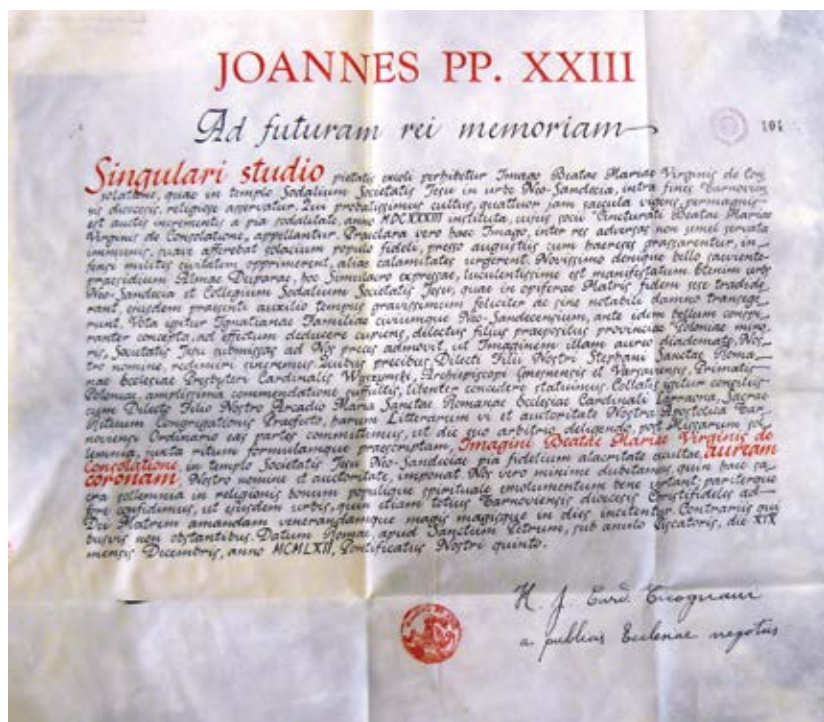 JOANNES PP. XXIII
Ad futuram rei memoriam
104
Singulari studio pietatis coli perhibetur Imago Beatae Mariae Virginis de Con
solatione, quae in templo Sodalium Societatis Jesu in urbe Neo-Sandecia, intra fines Tarnovien
sis dioecesis, religiose asservatur. Qui probatissimus cultus, quattuor jam saecula vigens, permagnis
est auctus incrementis a pia sodalitate, anno MDCXXXIII instituta, cujus socii "Cincturati Beatae Mariae
Virginis de Consolatione" appellantur. Praeclara vero haec Imago, inter res adversas non semel servata
immunis, suave afferebat solacium populo fideli, presso angustiis cum haereses grassarentur, in_
fensi milites civitatem opprimerent, aliae calamitates urgerent. Novissimo denique bello saeviente
praesidium Almae Deiparae, hoc Simulacro expressae, luculentissime est manifestatum. Etenim urbs
Neo-Sandecia et Collegium Sodalium Societatis Jesu, quae in opiferae Matris fidem sese tradide_
rant ejusdem praesenti auxilio tempus gravissimum feliciter ac sine notabili damno transege_
runt. Vota igitur Ignatianae Familiae civiumque Neo-Sandecensium, ante idem bellum conspi_
ranter concepta, ad effectum deducere cupiens, dilectus filius praepositus provinciae Poloniae mino_
ris, Societatis Jesu submissas ad Nos preces admovit, ut Imaginem illam aureo diademate, Nos_
tro nomine, redimiri sineremus. Quibus precibus Dilecti Filii Nostri Stephani Sanctae Roma_
nae Ecclesiae Presbyteri Cardinalis Wyszyński, Archiepiscopi Gnesnensis et Varsaviensis, Primatis
Poloniae, amplissima commendatione suffultis, libenter concedere statuimus. Collatis igitur consiliis
cum Dilecto Filio Nostro Arcadio Maria Sanctae Romanae Ecclesiae Cardinali Larraona, Sacrae
Rituum Congregationis Praefecto, harum Litterarum vi et auctoritate Nostra Apostolica Tar_
novensi Ordinario eas partes committimus, ut die suo arbitrio deligendo, post Missarum sol_
lemnia, juxta ritum formulamque praescriptam, Imagini Beatae Mariae Virginis de
Consolatione in templo Societatis Jesu Neo-Sandeciae pia fidelium alacritate excultae, auream
coronam Nostro nomine et auctoritate, imponat. Nos vero minime dubitamus, quin haec sa_
cra sollemnia in religionis bonum populique spirituale emolumentum bene vertant, pariterque
fore confidimus, ut ejusdem urbis, quin etiam totius Tarnoviensis dioecesis Christifideles ad
Dei Matrem amandam venerandamque magis magisque in dies incitentur. Contrariis qui
busvis non obstantibus. Datum Romae, apud Sanctum Petrum, sub anulo Piscatoris, die XIX
mensis Decembris, anno MCMLXII, Pontificatus Nostri quinto.
H. J. Card. Cicognani
a publicis Ecclesiae negotiis